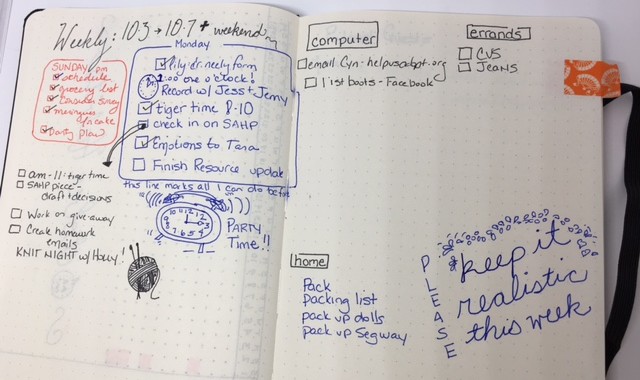 Weekly: 10.3 → 10.7 + weekend
SUNDAY
schedule
grocery list
party plan
Monday
form
1:00 one o'clock!
Record w/ Jess + Jenny
tiger time 8-10
check in on SAHP
Emotions to Tana
Finish Resource update
this line marks all I can do before
12
PARTY
Time!!
am-11: tiger time
SAHP piece -
draft + decisions
Work on give-away
Create homework
emails
KNIT NIGHT w/ Holly!
computer
email Cyn - helpusadopt.org
list boots - Facebook
errands
CVS
Jeans
home
Pack
packing list
pack up dolls
pack up Segway
PLEASE
keep it
realistic
this week